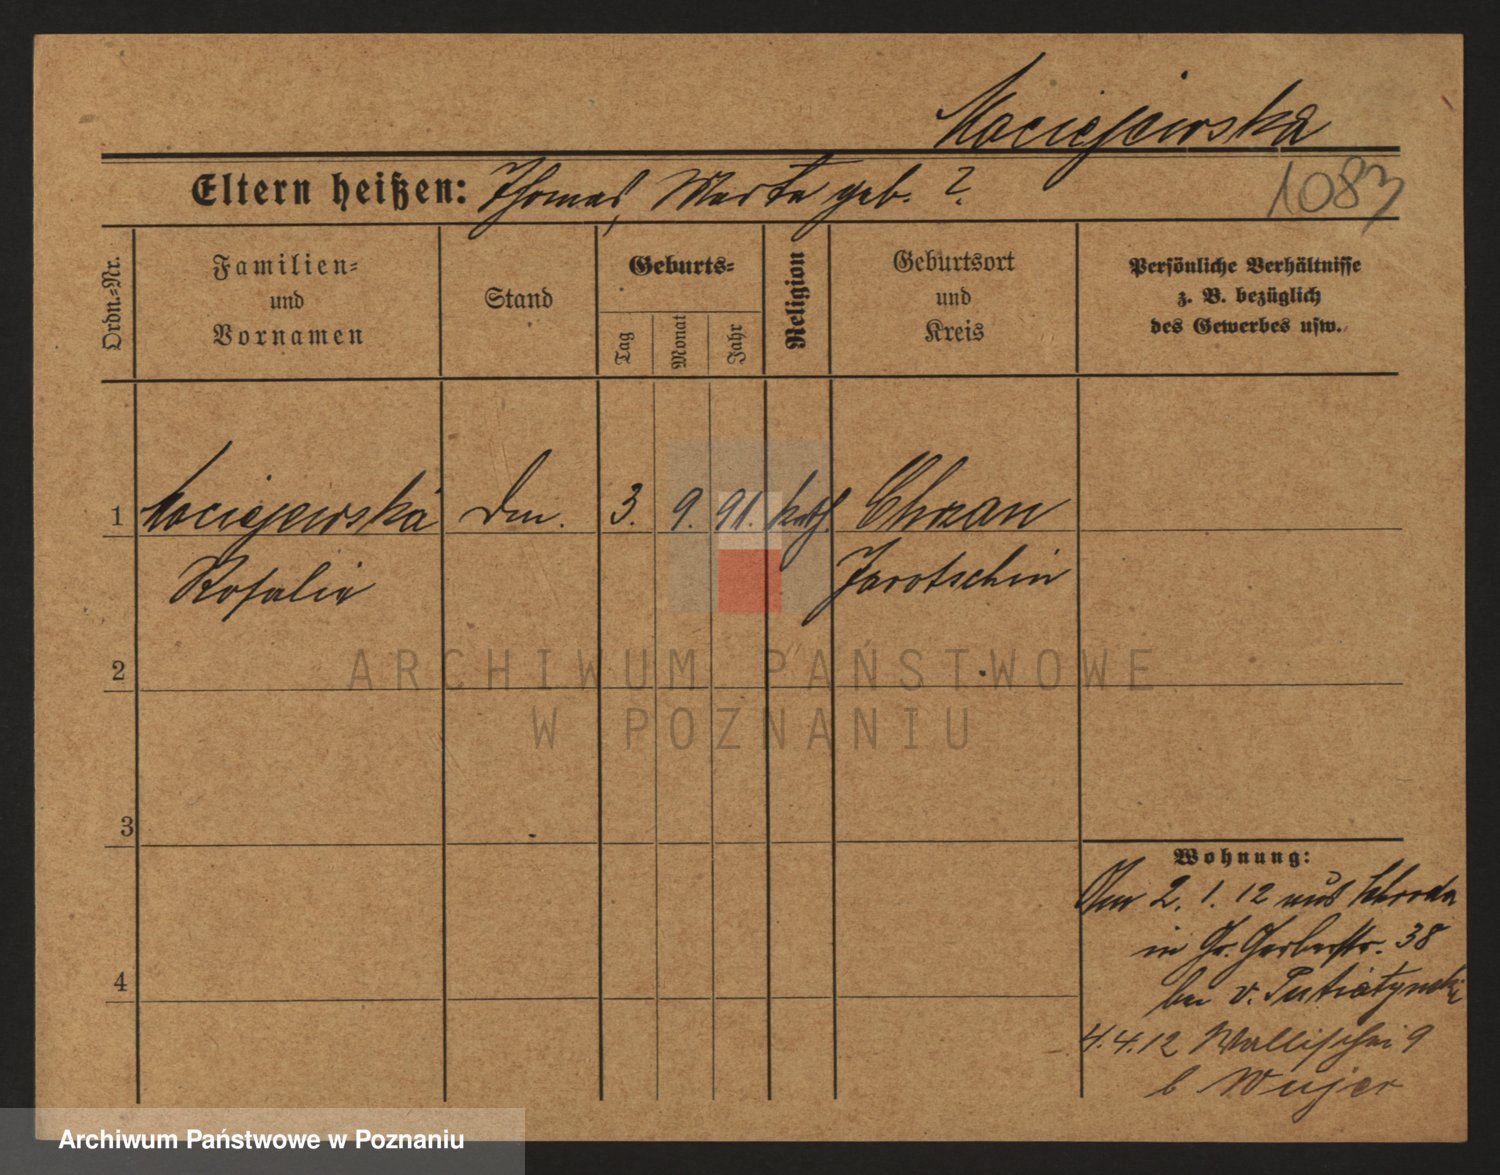 Maciejewska
Eltern heißen: Thomas, Marta geb. ?
1083
Ordn.-Nr.
Familien-
und
Vornamen
Stand
Geburts-
Tag
Monat
Jahr
Religion
Geburtsort
und
Kreis
Persönliche Verhältnisse
z. B. bezüglich
des Gewerbes usw.
1 Maciejewska 3. 9. 91. kath. Chrzan
Rosalie Jarotschin
ARCHIWUM PAŃSTWOWE
2
W POZNANIU
3
Wohnung:
2. 1. 12 aus Schroda
in Gr. Gerberstr. 38
bei v.
4
4.4.12 Wallischei 9
b Wujer
Archiwum Państwowe w Poznaniu